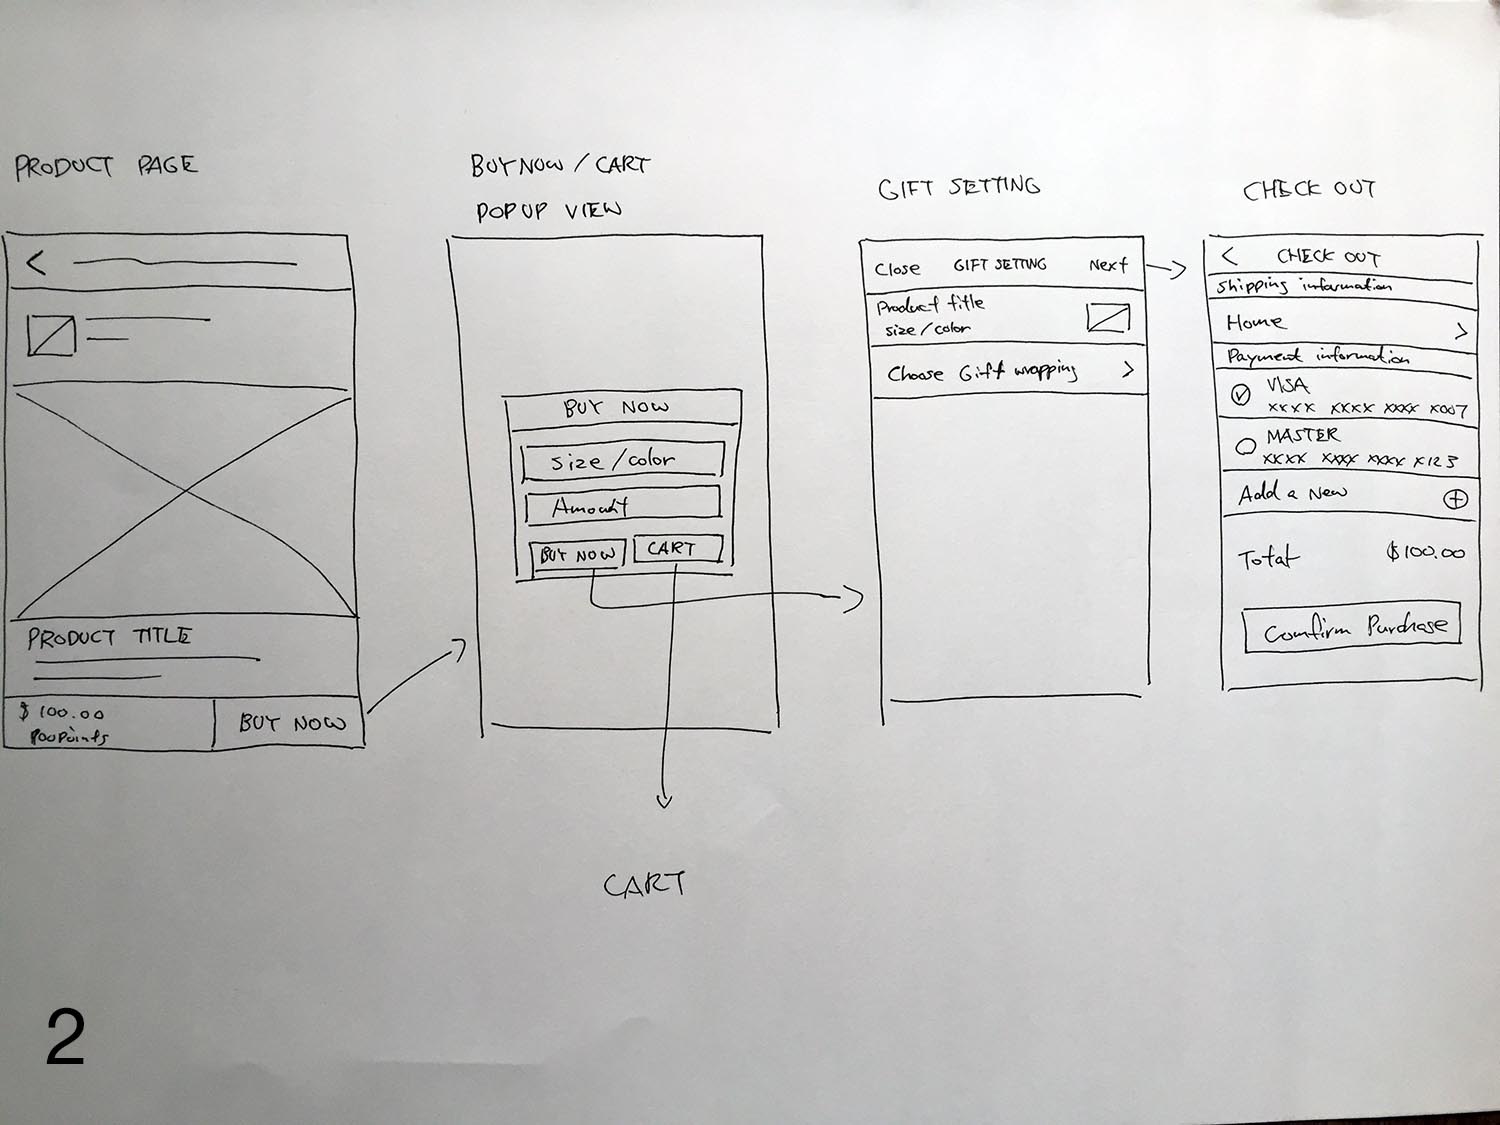 PRODUCT PAGE
PRODUCT TITLE
$ 100.00
BUY NOW
BUY NOW / CART
POPUP VIEW
BUY NOW
size/color
Amount
BUY NOW
CART
CART
GIFT SETTING
Close GIFT SETTING Next
Product title
size/color
Choose Gift wrapping >
CHECK OUT
< CHECK OUT
Shipping information
Home >
Payment information
VISA
xxxx xxxx xxxx x007
MASTER
xxxx xxxx xxxx x123
Add a New +
Total $100.00
Comfirm Purchase
2